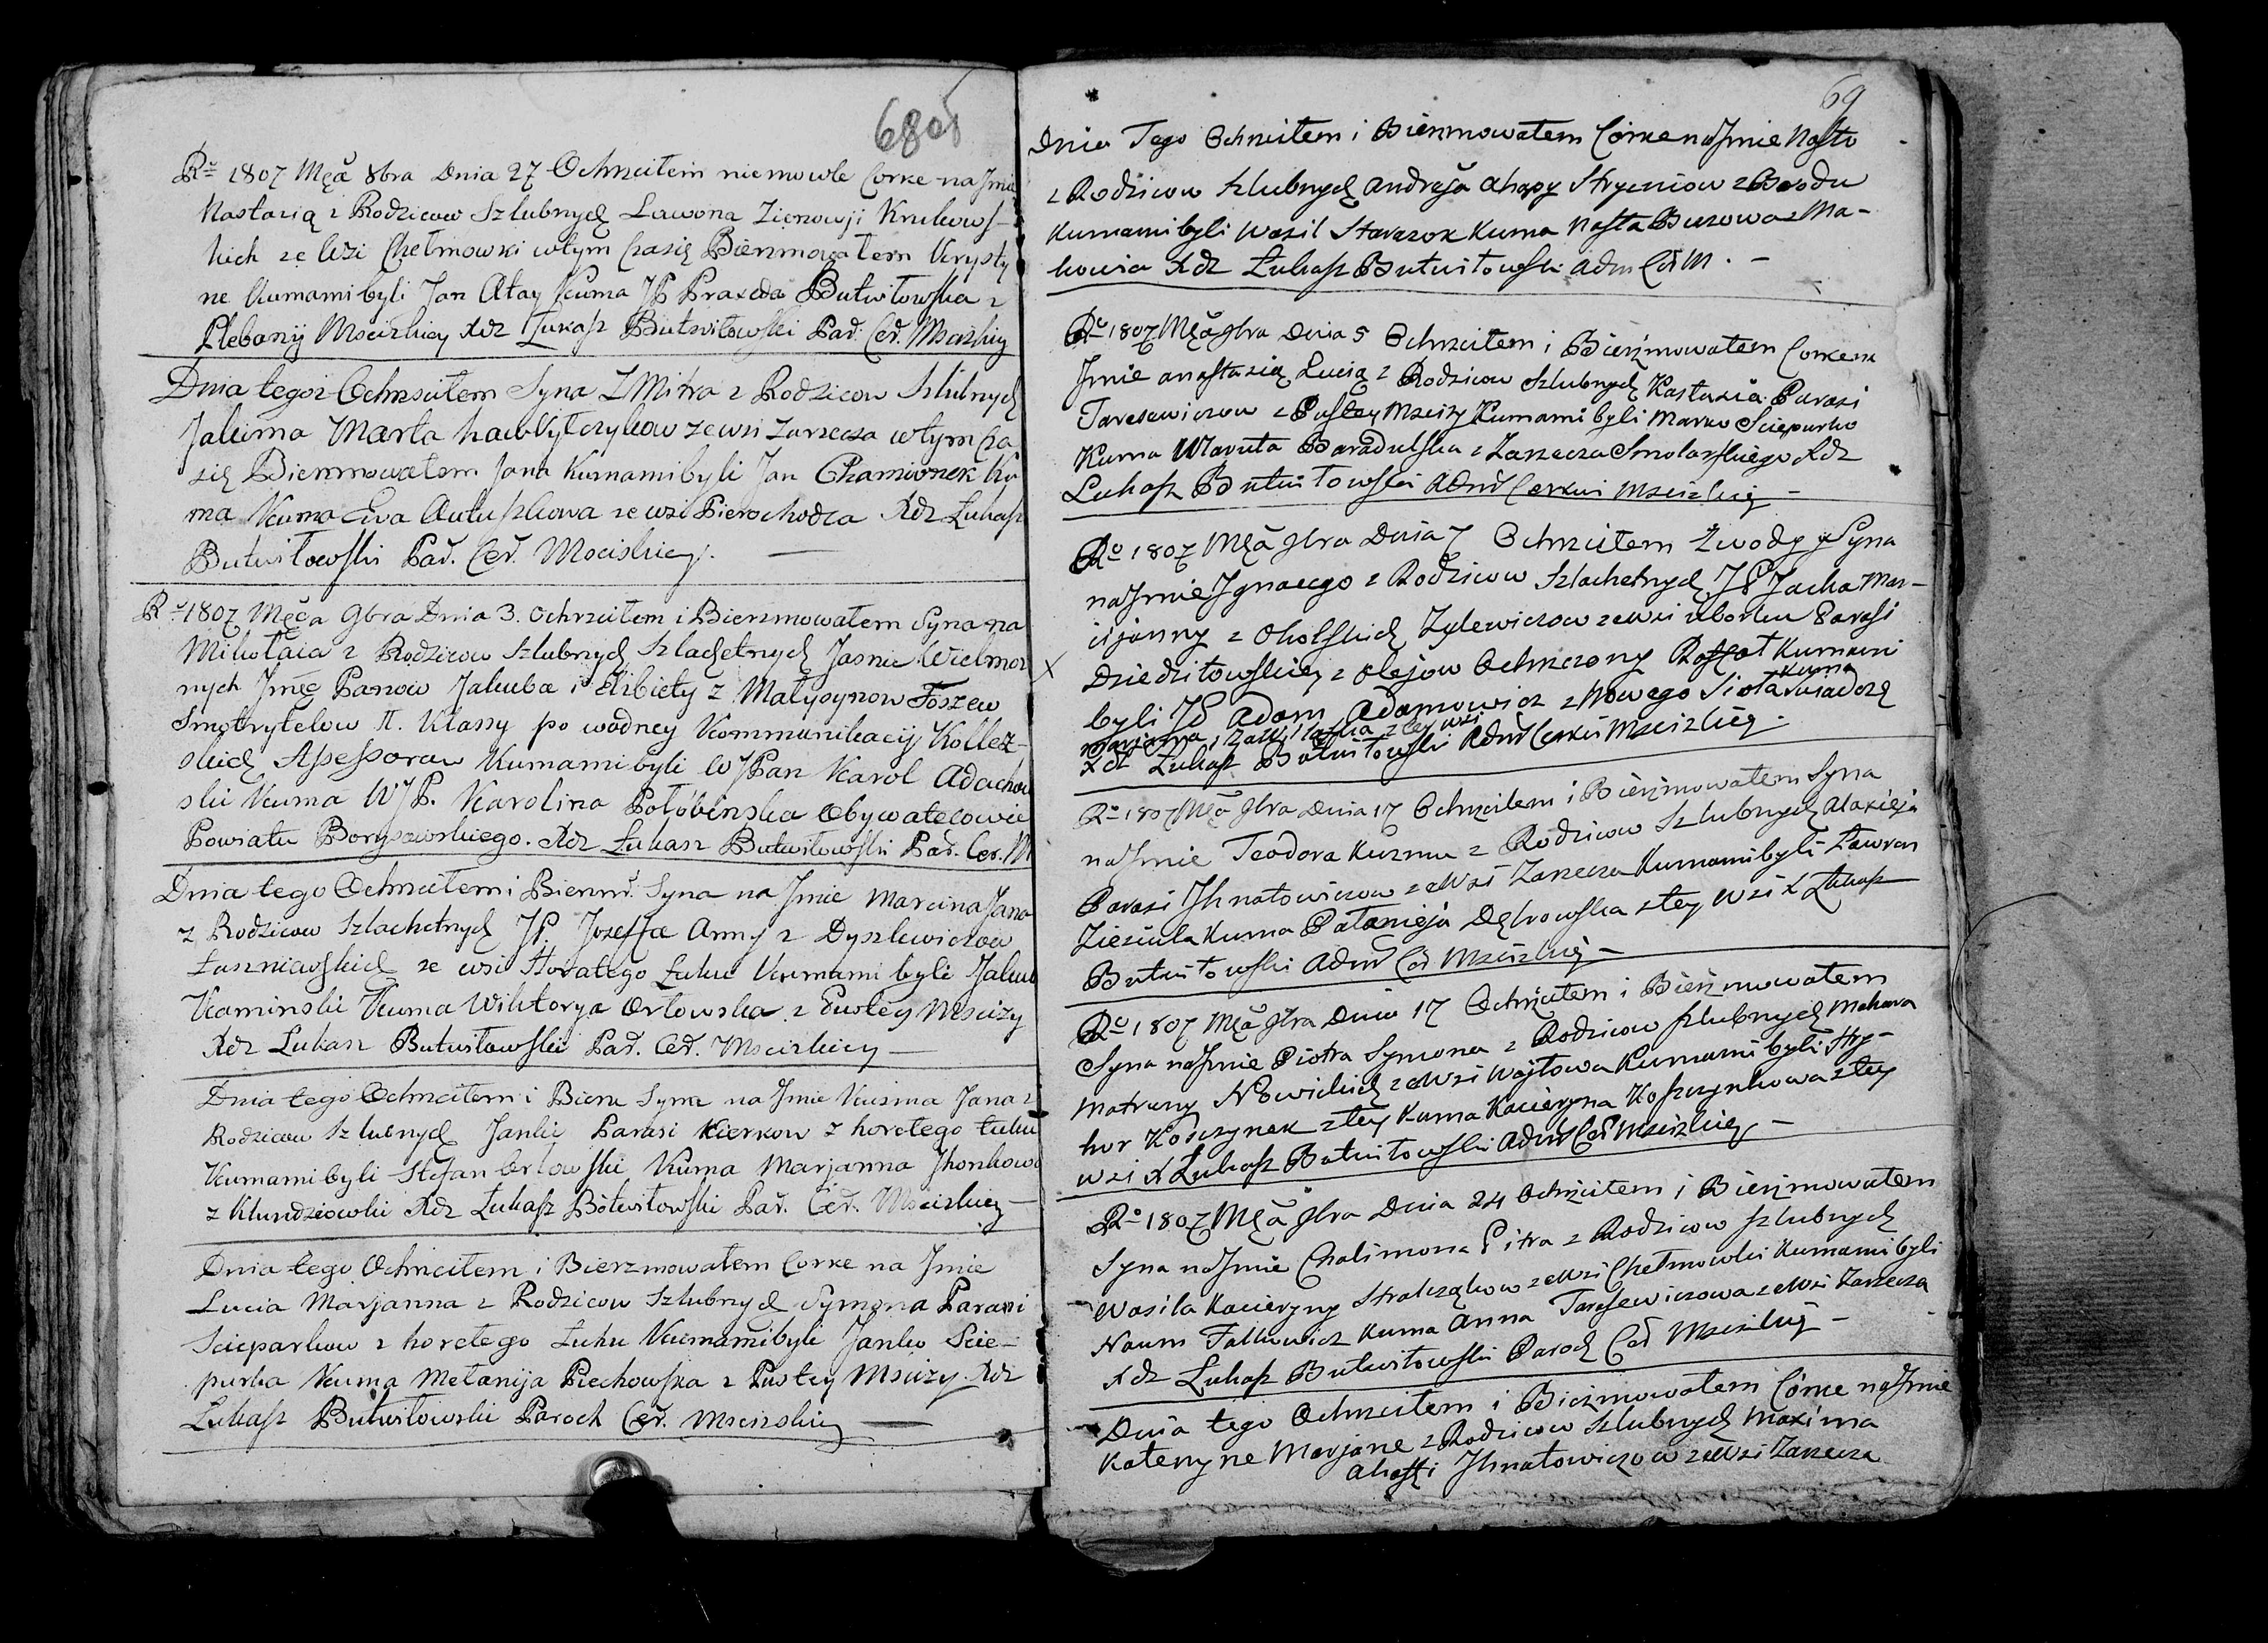 68об
Rº 1807 Mca 8bra Dnia 27 Ochrzciłem niemowle Corke na Jmie
Nastazią z Rodzicow Szlubnych Lawona Zienowji Krukows-
kich ze Wsi Chełmowki wtym Czasię Bierzmowałem Krysty
ne Kumami byli Jan Ałay Kuma JP Praxeda Butwiłowska z
Plebanij Mscizkiey Xdz Łukasz Butwiłowski Par. Cer. Mscizkiey
Dnia tegoz Ochrzciłem Syna ZMitra z Rodzicow Szlubnych
Jakima Marta zewsi Zarzecza wtym Cza
się Bierzmowałem Jana Kumami byli Jan Chamionek Ku
ma Kuma Ewa Autuszkowa ze wsi Pierechodca Xdz Łukasz
Butwiłowski Par. Cer. Mscizkiey. —
Rº 1807 Męca 9bra Dnia 3. Ochrzciłem i Bierzmowałem Syna na
Mikołaia z Rodzicow Szlubnych Szlachetnych Jasnie Wielmoz
nych Jmę Panow Jakuba i Elzbiety z Małysynow Foszew
Smotrytelow II. Klassy po wodney Kommunikacij Kollez-
skich Assessorow Kumami byli WJPan Karol Adachow
ski Kuma WJP. Karolina Połóbinska Obywatelowie
Powiatu Borysowskiego. Xdz Łukasz Butwiłowski Par. Cer. M
Dnia tego Ochrzciłem i Bierzm. Syna na Jmie Marcina Jana
z Rodzicow Szlachetnych JP. Jozeffa Anny z Dyszlewiczow
Łaszniewskich ze wsi Horałego Łuhu Kumami byli Jakub
Kaminski Kuma Wiktorya Orłowska z Pustey Mscizy
Xdz Łukasz Butwiłowski Par. Cer. Mscizkiey —
Dnia tego Ochrzciłem i Bierz Syna na Jmie Kuzma Jana z
Rodzicow Szlubnych Janki Parasi Kierkow z horełego Łuhu
Kumami byli Stefan Orłowski Kuma Marjanna Jhonkowa
z Klundziowki Xdz Łukasz Butwiłowski Par. Cer. Mscizkiey —
Dnia tego Ochrzciłem i Bierzmowałem Corke na Jmie
Lucia Marjanna z Rodzicow Szlubnych Symona Parasi
Scieparkow z horełego Łuhu Kumami byli Janko Scie-
purka Kuma Mełanija Piechowska z Pustey Mscizy Xdz
Łukasz Butwiłowski Paroch Cer. Mscizskiey —
69
Dnia Tego Ochrzciłem i Bierzmowałem Córke na Jmie Nasto
z Rodzicow Szlubnych Andreja Ahapy Stryzniow z Brodu
Kumami byli Wasil Starazok Kuma Nasta Burowa z Ma-
kowia Xdz Łukasz Butwiłowski Adm Cer M. —
Rº 1807 Męca 9bra Dnia 5 Ochrzciłem i Bierzmowałem Corke na
Jmie Anastazią Lucią z Rodzicow Szlubnych Kastusia Parasi
Tarasewiczow z Pustey Mscizy Kumami byli Marko Sciepurko
Kuma Marula Baradulska z Zarzecza Smolarskiego Xdz
Lukasz Butwiłowski Adm Cerkwi Mscizkiey —
Rº 1807 Męca 9bra Dnia 7 Ochrzciłem z wody Syna
na Jmie Jgnacego z Rodzicow Szlachetnych JP Jacha Mar-
ijanny z Okolskich Zylewiczow zewsi uborku Parafi
X Dziedziłowskiey z olejow Ochrzczony Kumami
byli JP Adam Adamowicz z Nowego Sioła Kuma
Marjanna z tey wsi
Xdz Łukasz Butwiłowski Adm Cerkwi Mscizkiey.
Rº 1807 Męca 9bra Dnia 17 Ochrzciłem i Bierzmowałem Syna
na Jmie Teodora Kuzmu z Rodzicow Szlubnych Alaxieja
Parasi Jhnatowiczow zeWsi Zarzecza Kumami byli Ławren
Zieziula Kuma Pałanieja Dębrowska z tey wsi X Łukasz
Butwiłowski Adm Cer Mscizkiey —
Rº 1807 Męca 9bra Dnia 17 Ochrzciłem i Bierzmowałem
Syna na Jmie Piotra Symona z Rodzicow Szlubnych Makara
Matruny Nowickich zeWsi Wojtowa Kumami byli Hry-
hor Koszzynek z tey Kuma Kacieryna Koszczynkowa z tey
wsi X Łukasz Butwiłowski Adm Cer Mscizkiey —
Rº 1807 Męca 9bra Dnia 24 Ochrzciłem i Bierzmowałem
Syna na Jmie Chalimona Pitra z Rodzicow Szlubnych
Wasila Kacieryny Stralcząkow zeWsi Chełmowki Kumami byli
Naum Falkowicz Kuma Anna Tarasewiczowa zeWsi Zarzecza
Xdz Łukasz Butwiłowski Paroch Cer Mscizkiey —
Dnia tego Ochrzciłem i Bierzmowałem Córke na Jmie
Kateryne Marjane z Rodzicow Szlubnych Maxima
Ahaffi Jhnatowiczow zeWsi Zarzecza